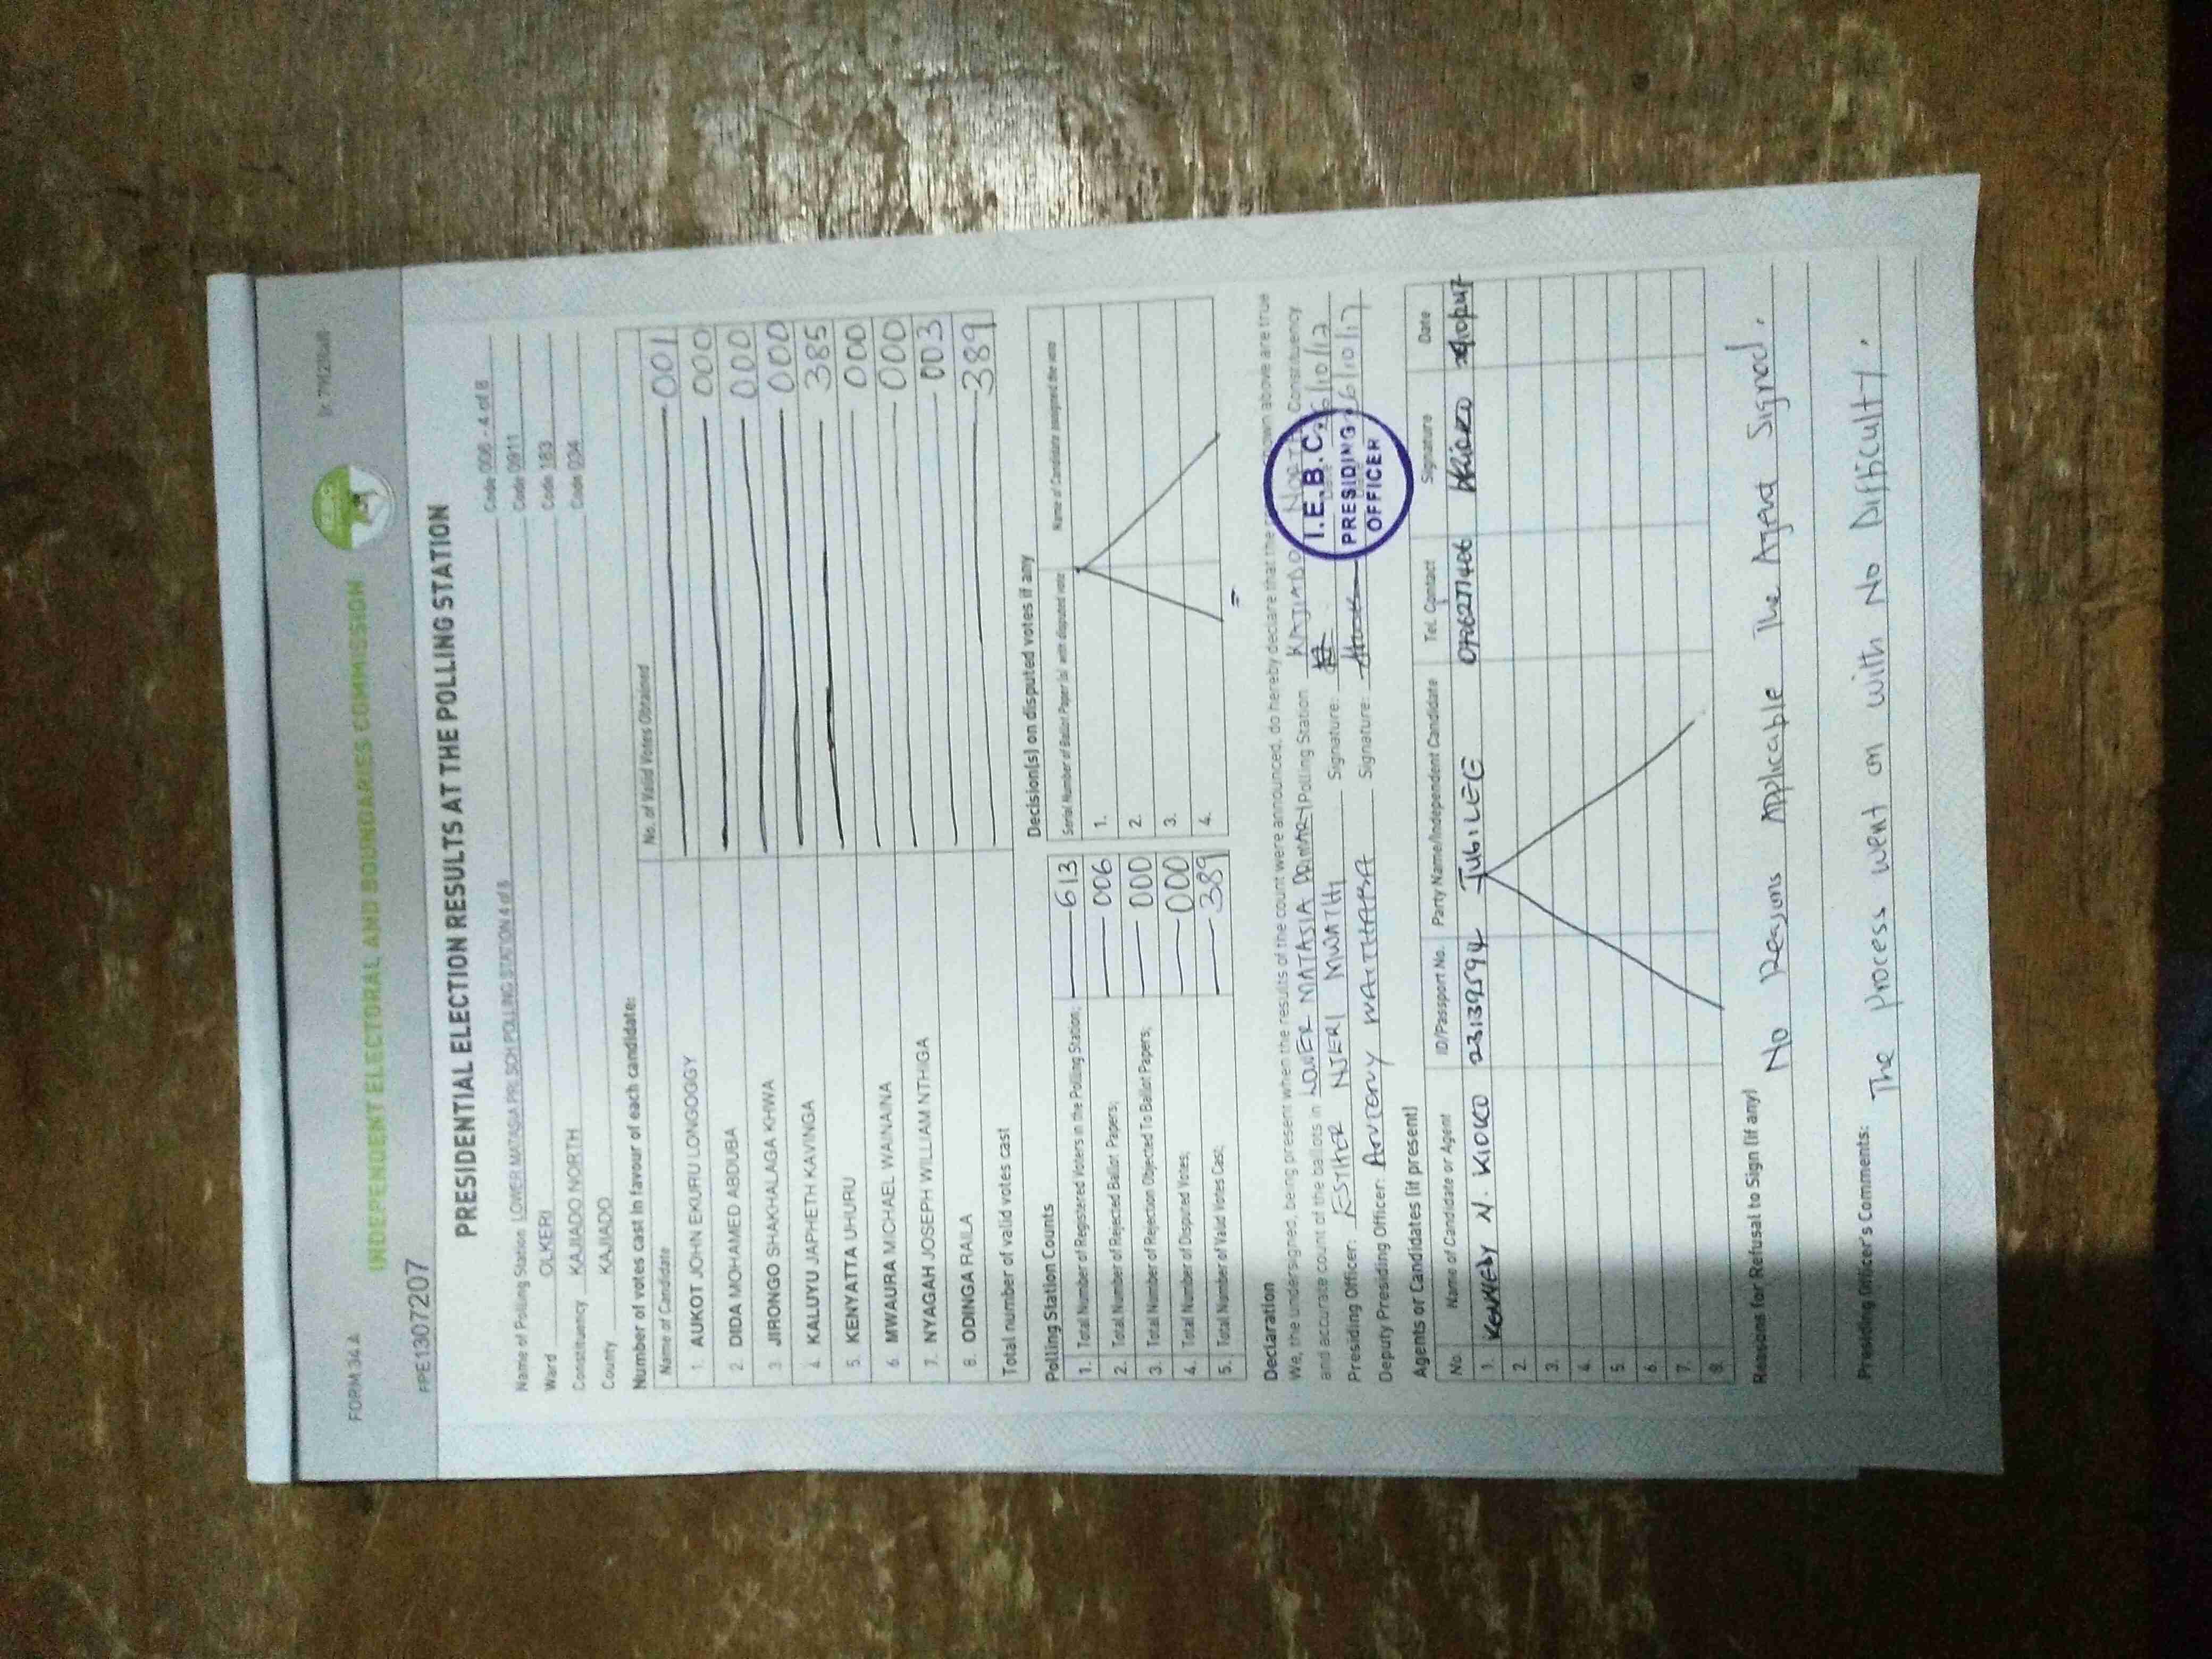 FORM 34 A
INDEPENDENT ELECTORAL AND BOUNDARIES COMMISSION
FPE1307207
PRESIDENTIAL ELECTION RESULTS AT THE POLLING STATION
Name of Polling Station LOWER MATASIA PRI. SCH POLLING STATION 4 of 8 Code 006 - 4 of 8
Ward OLKERI Code 0911
Constituency KAJIADO NORTH Code 183
County KAJIADO Code 034
Number of votes cast in favour of each candidate:
Name of Candidate No. of Valid Votes Obtained
1. AUKOT JOHN EKURU LONGOGGY 001
2. DIDA MOHAMED ABDUBA 000
3. JIRONGO SHAKHALAGA KHWA 000
4. KALUYU JAPHETH KAVINGA 000
5. KENYATTA UHURU 385
6. MWAURA MICHAEL WAINAINA 000
7. NYAGAH JOSEPH WILLIAM NTHIGA 000
8. ODINGA RAILA 003
Total number of valid votes cast 389
Polling Station Counts
1. Total Number of Registered Voters in the Polling Station; 613
2. Total Number of Rejected Ballot Papers; 006
3. Total Number of Rejection Objected To Ballot Papers; 000
4. Total Number of Disputed Votes; 000
5. Total Number of Valid Votes Cast; 389
Decision(s) on disputed votes if any
Serial Number of Ballot Paper (s) with disputed vote Name of Candidate assigned the vote
1.
2.
3.
4.
Declaration
We, the undersigned, being present when the results of the count were announced, do hereby declare that the shown above are true
and accurate count of the ballots in LOWER MATASIA PRIMARY Polling Station KAJIADO NORTH Constituency
Presiding Officer: ESTHER NJERI MWATHI Signature: 26/10/17
Deputy Presiding Officer: ANTONY WAITHAKA Signature: 26/10/17
I.E.B.C.
PRESIDING
OFFICER
Agents or Candidates (if present)
No. Name of Candidate or Agent ID/Passport No. Party Name/Independent Candidate Tel. Contact Signature Date
1. KENNEDY N. KIOKO 23139594 JUBILEE 0706277406 KIOKO
2.
3.
4.
5.
6.
7.
8.
Reasons for Refusal to Sign (if any)
No Reasons Applicable The Agent Signed.
Presiding Officer's Comments:
The Process went on with No Difficulty.